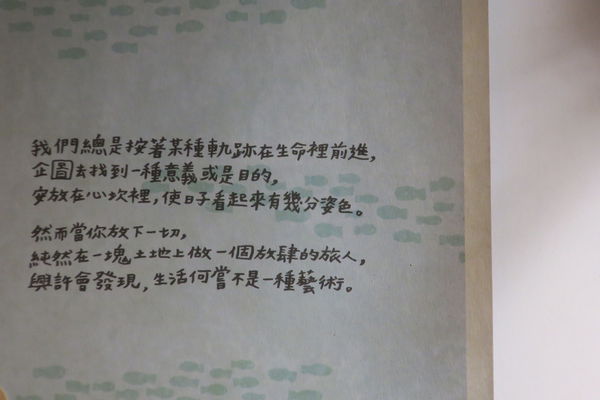 我們總是按著某種軌跡在生命裡前進，
企圖去找到一種意義或是目的，
安放在心坎裡，使日子看起來有幾分姿色。
然而當你放下一切，
純然在一塊土地上做一個放肆的旅人，
興許會發現，生活何嘗不是一種藝術。